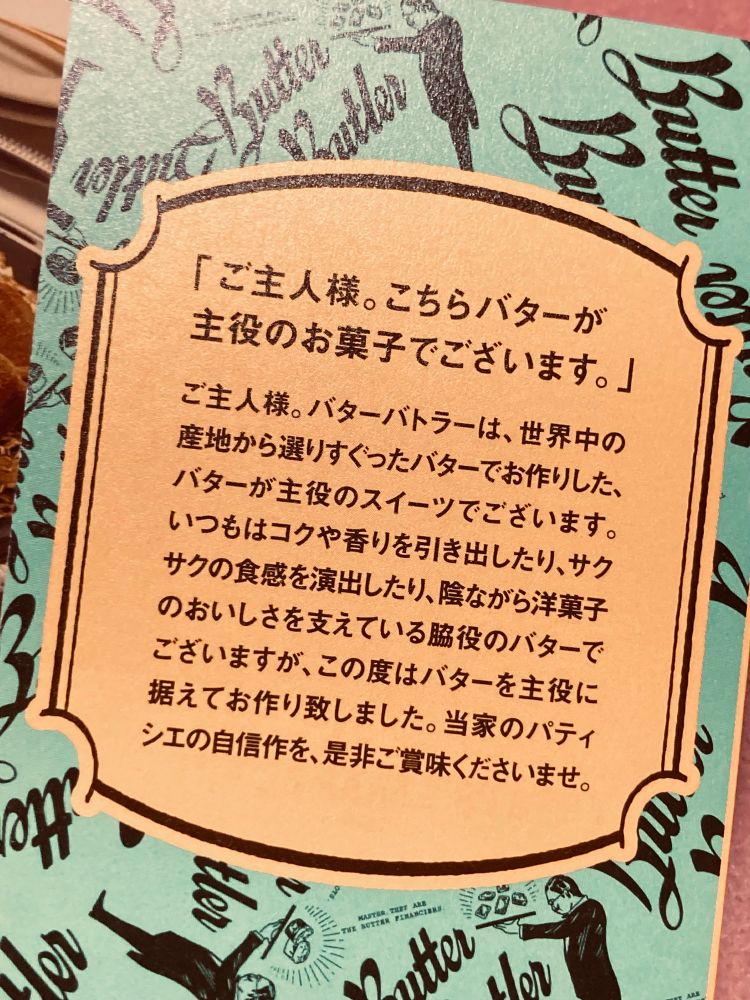 Butter
Butler
Butter
「ご主人様。こちらバターが
主役のお菓子でございます。」
ご主人様。バターバトラーは、世界中の
産地から選りすぐったバターでお作りした、
バターが主役のスイーツでございます。
いつもはコクや香りを引き出したり、サク
サクの食感を演出したり、陰ながら洋菓子
のおいしさを支えている脇役のバターで
ございますが、この度はバターを主役に
据えてお作り致しました。当家のパティ
シエの自信作を、是非ご賞味くださいませ。
MASTER, THEY ARE
THE BUTTER FINANCIERS.
Butter
Butler